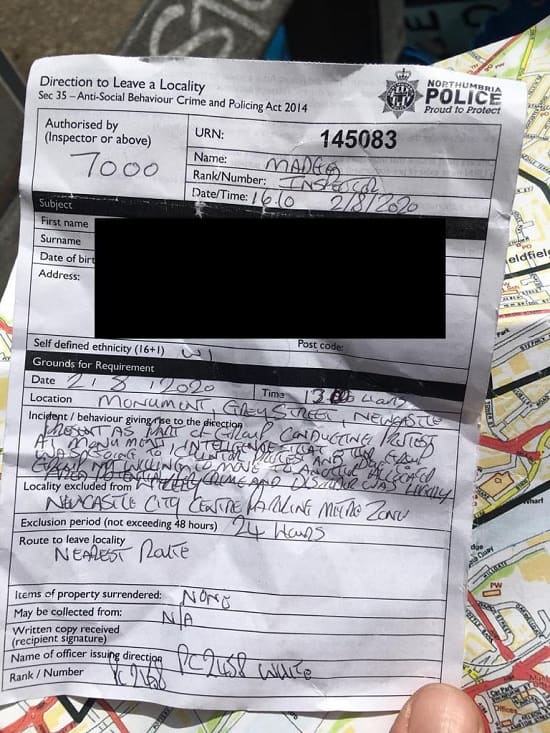 Direction to Leave a Locality
Sec 35 – Anti-Social Behaviour Crime and Policing Act 2014
NORTHUMBRIA
POLICE
Proud to Protect
Authorised by
(Inspector or above)
7000
URN: 145083
Name:
Rank/Number: INSPECTOR
Date/Time: 16.10 2/8/2020
Subject
First name
Surname
Date of birt
Address:
Self defined ethnicity (16+1) W1 Post code:
Grounds for Requirement
Date 2/8/2020 Time hours
Location MONUMENT, GREY STREET, NEWCASTLE
Incident / behaviour giving rise to the direction
PRESENT AS PART OF GROUP CONDUCTING PROTEST
AT MONUMENT. INTELLIGENCE THAT
GROUP NOT WILLING TO MOVE TO ANOTHER
CRIME AND DISORDER WAS LIKELY
Locality excluded from
NEWCASTLE CITY CENTRE METRO ZONE
Exclusion period (not exceeding 48 hours) 24 HOURS
Route to leave locality
NEAREST ROUTE
Items of property surrendered: NONE
May be collected from: N/A
Written copy received
(recipient signature)
Name of officer issuing direction PC2458 WHITE
Rank / Number PC2458
eldfield
PW